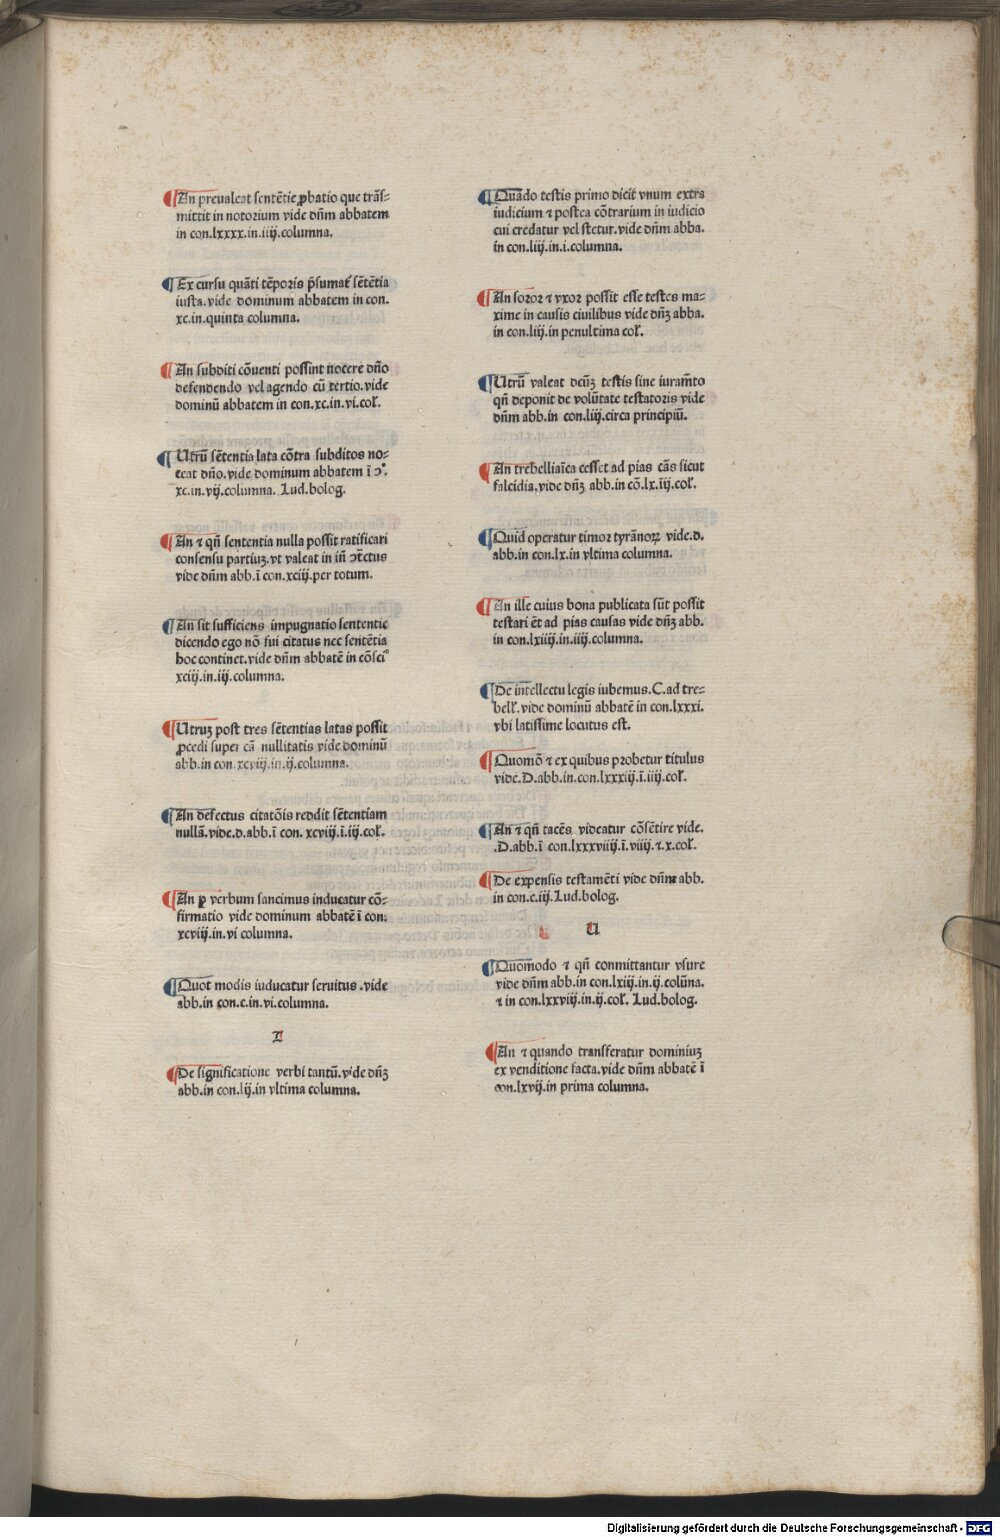 ¶An prevaleat sentētie ꝓbatio que trās-
mittit in notorium vide dn̄m abbatem
in con.lxxxx.in.iiij.columna.
¶Ex cursu quāti tēporis p̄sumat᷑ sētētia
iusta.vide dominum abbatem in con.
xc.in.quinta columna.
¶An subditi cōuenti possint nocere dn̄o
defendendo vel agendo cū tertio.vide
dominū abbatem in con.xc.in.vi.col̛.
¶Utrū sētentia lata cōtra subditos no-
ceat dn̄o.vide dominum abbatem ī ɔ̄.
xc.in.vij.columna. Lud.bolog.
¶An ⁊ qn̄ sententia nulla possit ratificari
consensu partiuꝫ.vt valeat in in̄ ɔtēctus
vide dn̄m abb.ī con.xciij.per totum.
¶An sit sufficiens impugnatio sententie
dicendo ego nō fui citatus nec sentētia
hoc continet.vide dn̄m abbatē in cōsci°
xciij.in.iij.columna.
¶Utruꝫ post tres sētentias latas possit
ꝓcedi super cā nullitatis vide dominū
abb.in con.xcviij.in.ij.columna.
¶An defectus citatōis reddit sētentiam
nullā.vide.d.abb.ī con. xcviij.ī.iij.col̛.
¶An ꝑ verbum sancimus inducatur cō-
firmatio vide dominum abbatē ī con.
xcviij.in.vi columna.
¶Quot modis iuducatur seruitus .vide
abb.in con.c.in.vi.columna.
T
¶De significatione verbi tantū.vide dn̄ꝫ
abb.in con.lij.in vltima columna.
¶Quādo testis primo dicit vnum extra
iudicium ⁊ postea cōtrarium in iudicio
cui credatur vel stetur.vide dn̄m abba.
in con.liij.in.i.columna.
¶An soror ⁊ vxor possit esse testes ma-
xime in causis ciuilibus vide dn̄ꝫ abba.
in con.liij.in penultima col̛.
¶Utrū valeat dcūꝫ testis sine iuram̄to
qn̄ deponit de volūtate testatoris vide
dn̄m abb.in con.liij.circa principiū.
¶An trebelliaīca cesset ad pias cās sicut
falcidia.vide dn̄ꝫ abb.in cō.lx.īij.col̛.
¶Quid operatur timor tyrānoꝝ vide.d.
abb.in con.lx.in vltima columna.
¶An ille cuius bona publicata sūt possit
testari ēt ad pias causas vide dn̄ꝫ abb.
in con.lxiiij.in.iiij.columna.
¶De intellectu legis iubemus.C.ad tre-
bell̛.vide dominū abbatē in con.lxxxi.
vbi latissime locutus est.
¶Quomō ⁊ ex quibus probetur titulus
vide.D.abb.in.con.lxxxiij.ī.iiij.col̛.
¶An ⁊ qn̄ tacēs videatur cōsētire vide.
.D.abb.ī con.lxxxviiij.ī.viiij.⁊.x.col̛.
¶De expensis testamēti vide dn̄m abb.
in con.c.iij.Lud.bolog.
U
¶Quomodo ⁊ qn̄ conmittantur vsure
vide dn̄m abb.in con.lxiij.in.ij.colūna.
⁊ in con.lxxviij.in.ij.col̛. Lud.bolog.
¶An ⁊ quando transferatur dominiuꝫ
ex venditione facta.vide dn̄m abbatē ī
con.lxvij.in prima columna.
Digitalisierung gefördert durch die Deutsche Forschungsgemeinschaft - DFG